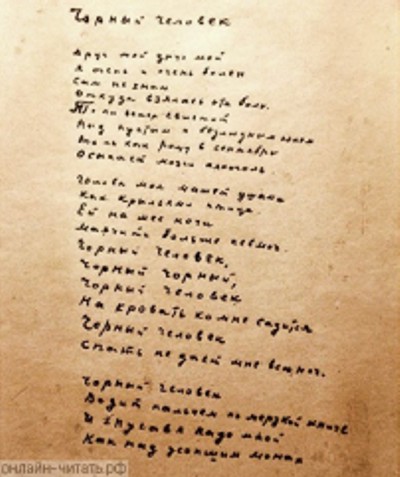 Чорный человек
Друг мой друг мой
Я очень и очень болен
Сам не знаю
Откуда взялась эта боль.
То ли ветер свистит
Над пустым и безлюдным полем
То ль как рощу в сентябрь
Осыпает мозги алкоголь.
Голова моя машет ушами
Как крыльями птица.
Ей на шее ноги
Маячить больше невмочь.
Чорный человек,
Чорный чорный,
Чорный человек
На кровать ко мне садится
Чорный человек
Спать не дает мне всю ночь.
Чорный человек
Водит пальцем по мерзкой книге
И гнусавя надо мной
Как над усопшим монах
онлайн-читать.рф